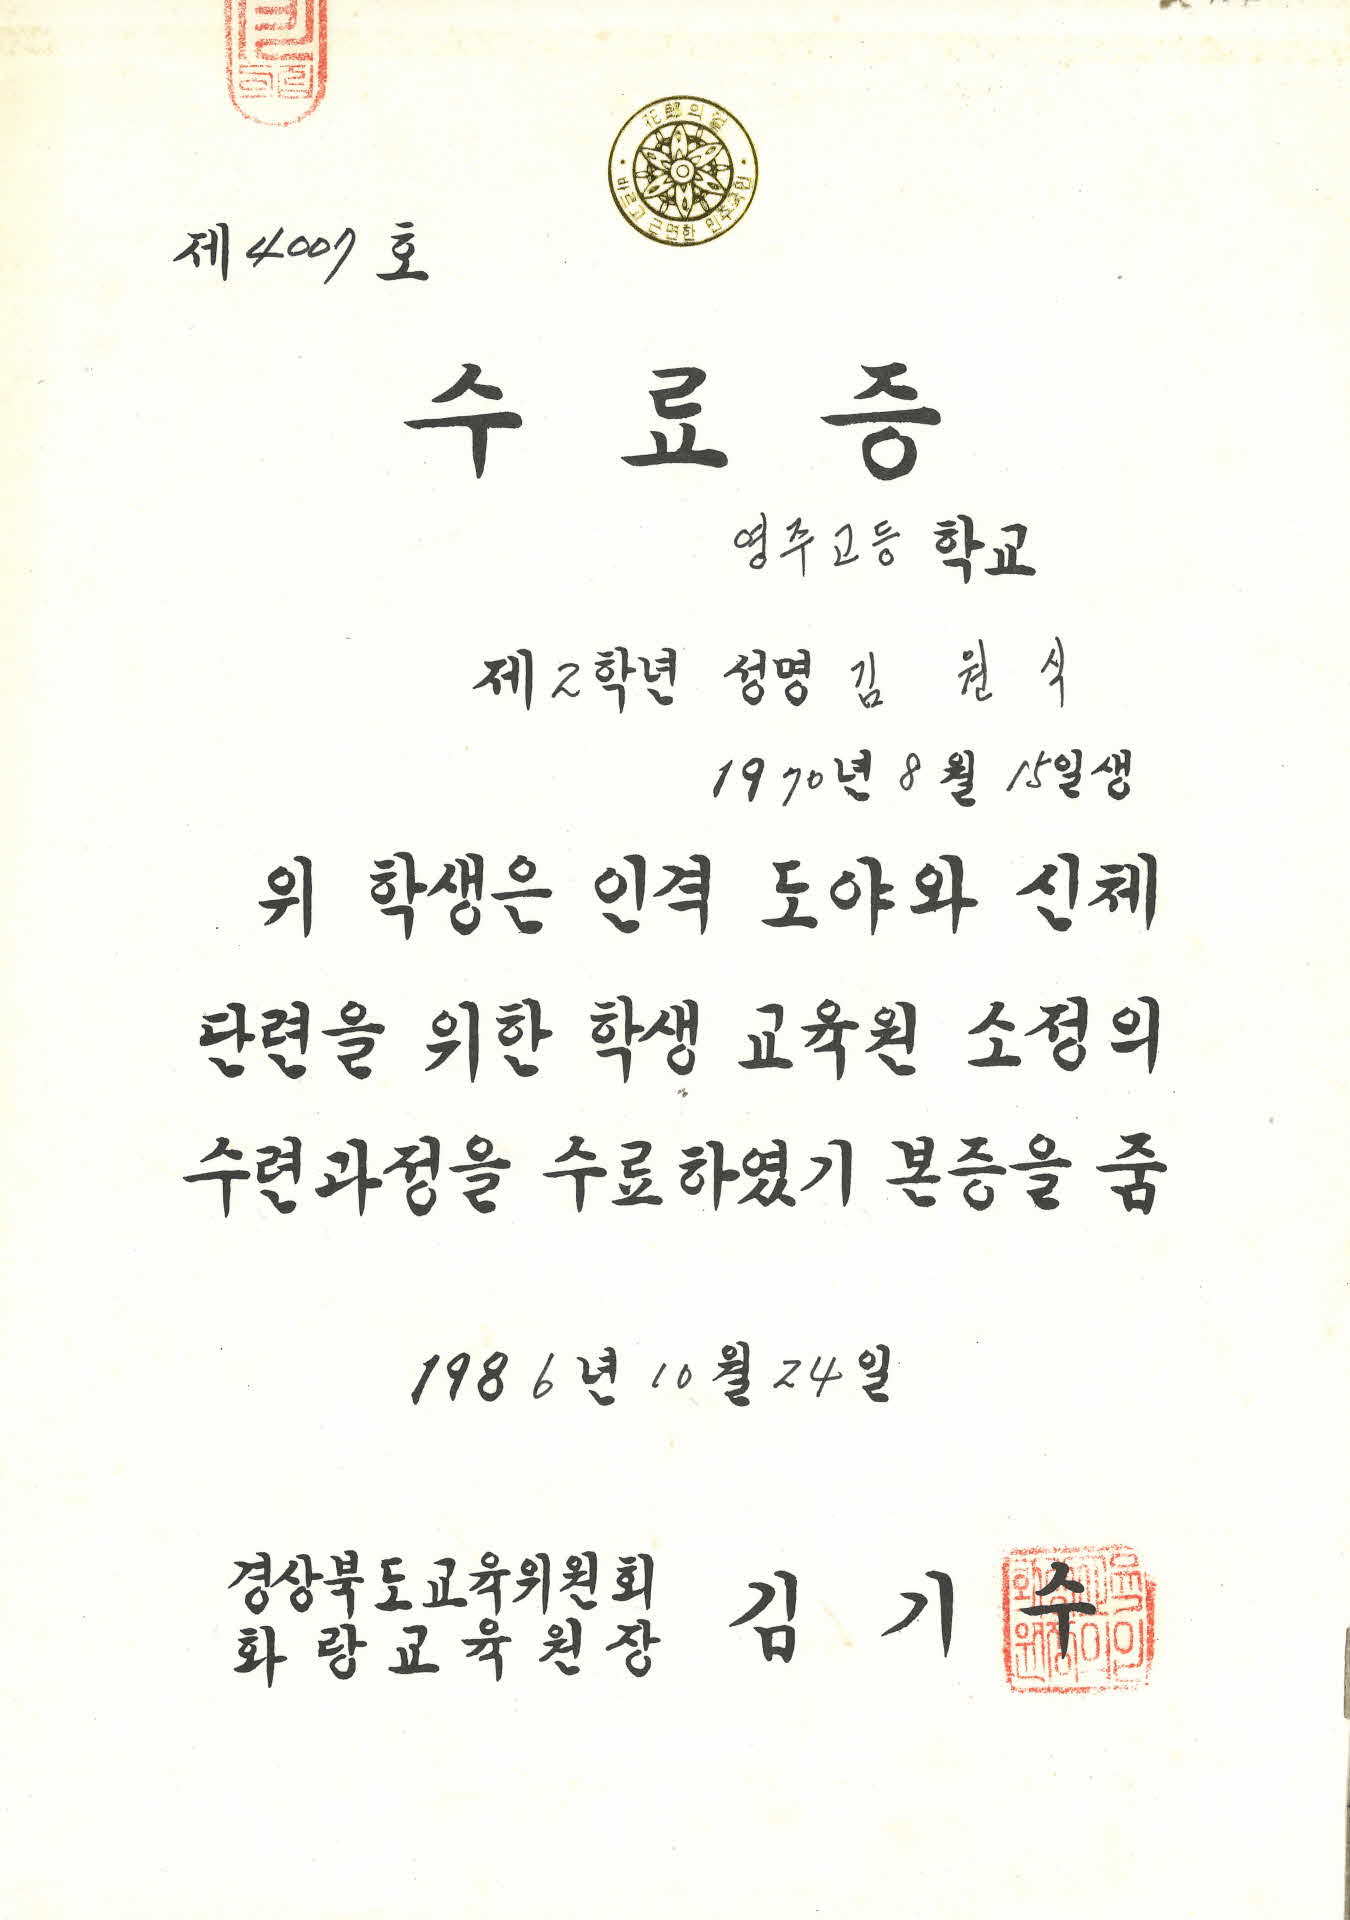 花郎의 얼
바르고 근면한 민주국민
제4007호
수료증
영주고등 학교
제2학년 성명 김 원 식
1970년 8월 15일생
위 학생은 인격 도야와 신체
단련을 위한 학생 교육원 소정의
수련과정을 수료하였기 본증을 줌
1986년 10월 24일
경상북도교육위원회
화랑교육원장 김 기 수